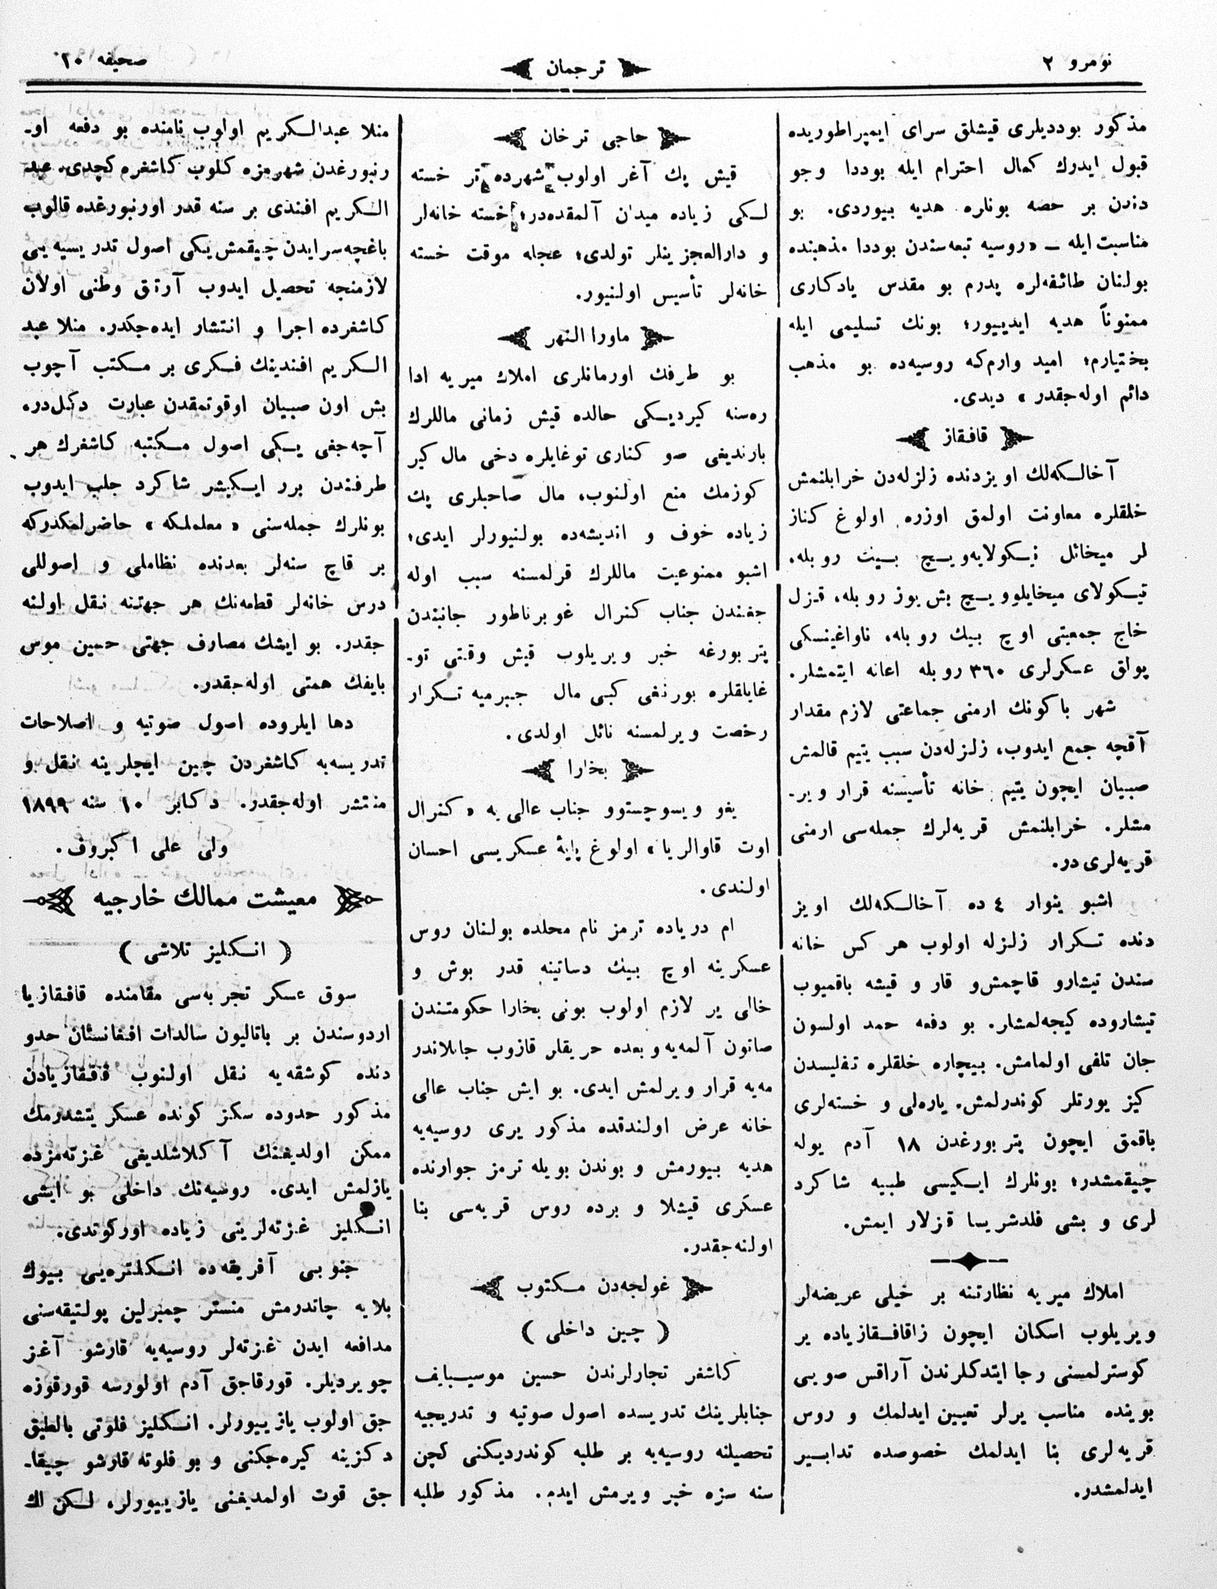 نومرو ٢
ترجمان
صحيفه ٢٠
مذكور بوددیلری قیشلق سرای ایمپراطوریده
قبول ایدرك كمال احترام ایله بوددا وجو
دندن بر حصه بونلره هدیه بیوردی. بو
مناسبت ایله — «روسیه تبعه‌سندن بوددا مذهبنده
بولنان طائفه‌لره پدرم بو مقدس یادكاری
ممنوناً هدیه ایدییور؛ بونك تسلیمی ایله
بختیارم؛ امید وارم‌كه روسیه‌ده بو مذهب
دائم اوله‌جقدر» دیدی.
قافقاز
آخالكه‌لك اویزدنده زلزله‌دن خرابلنمش
خلقلره معاونت اولمق اوزره اولوغ كناز
لر میخائل نیكولایه‌ویچ بیك روبله،
نیكولای میخایلوویچ بش یوز روبله، قزل
خاج جمعیتی اوچ بیك روبله، ناواغینسكی
پولق عسكرلری ٣٦٠ روبله اعانه ایتمشلر.
شهر باكونك ارمنی جماعتی لازم مقدار
آقچه جمع ایدوب، زلزله‌دن سبب یتیم قالمش
صبیان ایچون یتیم خانه تأسیسنه قرار ویر-
مشلر. خرابلنمش قریه‌لرك جمله‌سی ارمنی
قریه‌لری در.
اشبو ینوار ٤ ده آخالكه‌لك اویز
دنده تكرار زلزله اولوب هر كس خانه
سندن تیشارو قاچمش‌و قار و قیشه باقمیوب
تیشاروده كیجه‌لمشار. بو دفعه حمد اولسون
جان تلفی اولمامش. بیچاره خلقلره تفلیسدن
كیز یورتلر كوندرلمش. یاره‌لی و خسته‌لری
باقمق ایچون پتربورغدن ١٨ آدم یوله
چیقمشدر؛ بونلرك ایكیسی طبیه شاكرد
لری و بشی فلدشریسا قزلار ایمش.
املاك میریه نظارتنه بر خیلی عریضه‌لر
ویریلوب اسكان ایچون زاقافقازیاده یر
كوسترلمسنی رجا ایتدكلرندن آراقس صویی
بوینده مناسب یرلر تعیین ایدلمك و روس
قریه‌لری بنا ایدلمك خصوصده تدابیر
ایدلمشدر.
حاجی ترخان
قیش پك آغر اولوب شهرده تر خسته
لكی زیاده میدان آلمقده‌در؛ خسته خانه‌لر
و دارالعجزینلر تولدی؛ عجله موقت خسته
خانه‌لر تأسیس اولنیور.
ماورا النهر
بو طرفك اورمانلری املاك میریه ادا
ره‌سنه كیردیكی حالده قیش زمانی ماللرك
بارندیغی صو كناری توغایلره دخی مال كیر
كوزمك منع اولنوب، مال صاحبلری پك
زیاده خوف و اندیشه‌ده بولنیورلر ایدی؛
اشبو ممنوعیت ماللرك قرلمسنه سبب اوله
جغندن جناب كنرال غوبرناطور جانبندن
پتربورغه خبر ویریلوب قیش وقتی تو-
غایلقلره بورنغی كبی مال جیبرمیه تكرار
رخصت ویرلمسنه نائل اولدی.
بخارا
یغو ویسوچستوو جناب عالی یه «كنرال
اوت قاوالریا» اولوغ پایهٔ عسكریسی احسان
اولندی.
ام دریاده ترمز نام محلده بولنان روس
عسكرینه اوچ بیك دساتینه قدر بوش و
خالی یر لازم اولوب بونی بخارا حكومتندن
صاتون آلمه‌یه و بعده حریقلر قازوب جابلاندر
مه‌یه قرار ویرلمش ایدی. بو ایش جناب عالی
خانه عرض اولندقده مذكور یری روسیه‌یه
هدیه بیورمش و بوندن بویله ترمز جوارنده
عسكری قیشلا و برده روس قریه‌سی بنا
اولنه‌جقدر.
غولجه‌دن مكتوب
( چین داخلی )
كاشغر تجارلرندن حسین موسی‌بایف
جنابلرینك تدریسده اصول صوتیه و تدریجیه
تحصیلنه روسیه‌یه بر طلبه كوندردیكنی كچن
سنه سزه خبر ویرمش ایدم. مذكور طلبه
منلا عبدالكریم اولوب نامنده بو دفعه او-
رنبورغدن شهرمزه كلوب كاشغره كچدی. عبد
الكریم افندی بر سنه قدر اورنبورغده قالوب
باغچه‌سرایدن چیقمش یكی اصول تدریسیه یی
لازمنجه تحصیل ایدوب آرتق وطنی اولان
كاشغرده اجرا و انتشار ایده‌جكدر. منلا عبد
الكریم افندینك فكری بر مكتب آچوب
بش اون صبیان اوقوتمقدن عبارت دكل‌در،
آچه‌جغی یكی اصول مكتبه كاشغرك هر
طرفندن برر ایكیشر شاكرد جلب ایدوب
بونلرك جمله‌سنی «معلملكه» حاضرلمكدركه
بر قاچ سنه‌لر بعدنده نظاملی و اصوللی
درس خانه‌لر قطعه‌نك هر جهتنه نقل اولنه
جقدر. بو ایشك مصارف جهتی حسین موس
بایفك همتی اوله‌جقدر.
دها ایلروده اصول صوتیه و اصلاحات
تدریسه‌یه كاشغردن چین ایچلرینه نقل و
منتشر اوله‌جقدر. دكابر ١٠ سنه ١٨٩٩
ولی علی اكبروف.
معیشت ممالك خارجیه
( انكلیز تلاشی )
سوق عسكر تجربه‌سی مقامنده قافقازیا
اردوسندن بر باتالیون سالدات افغانستان حدو
دنده كوشقه‌یه نقل اولنوب قافقازیادن
مذكور حدوده سكز كونده عسكر یتشدرمك
ممكن اولدیغنك آكلاشلدیغی غزته‌مزده
یازلمش ایدی. روسیه‌نك داخلی بو ایشی
انكلیز غزته‌لرینی زیاده اوركوتدی.
جنوبی آفریقه‌ده انكلتره‌یی بیوك
بلایه چاندرمش منستر چمبرلین پولتیقه‌سنی
مدافعه ایدن غزته‌لر روسیه‌یه قارشو آغز
چویردیلر. قورقاجق آدم اولورسه قورقوزه
جق اولوب یازیبورلر. انكلیز فلوتی بالطیق
دكزینه كیره‌جكنی و بو فلوته قارشو چیقا-
جق قوت اولمدیغنی یازیبورلر، لكن لك